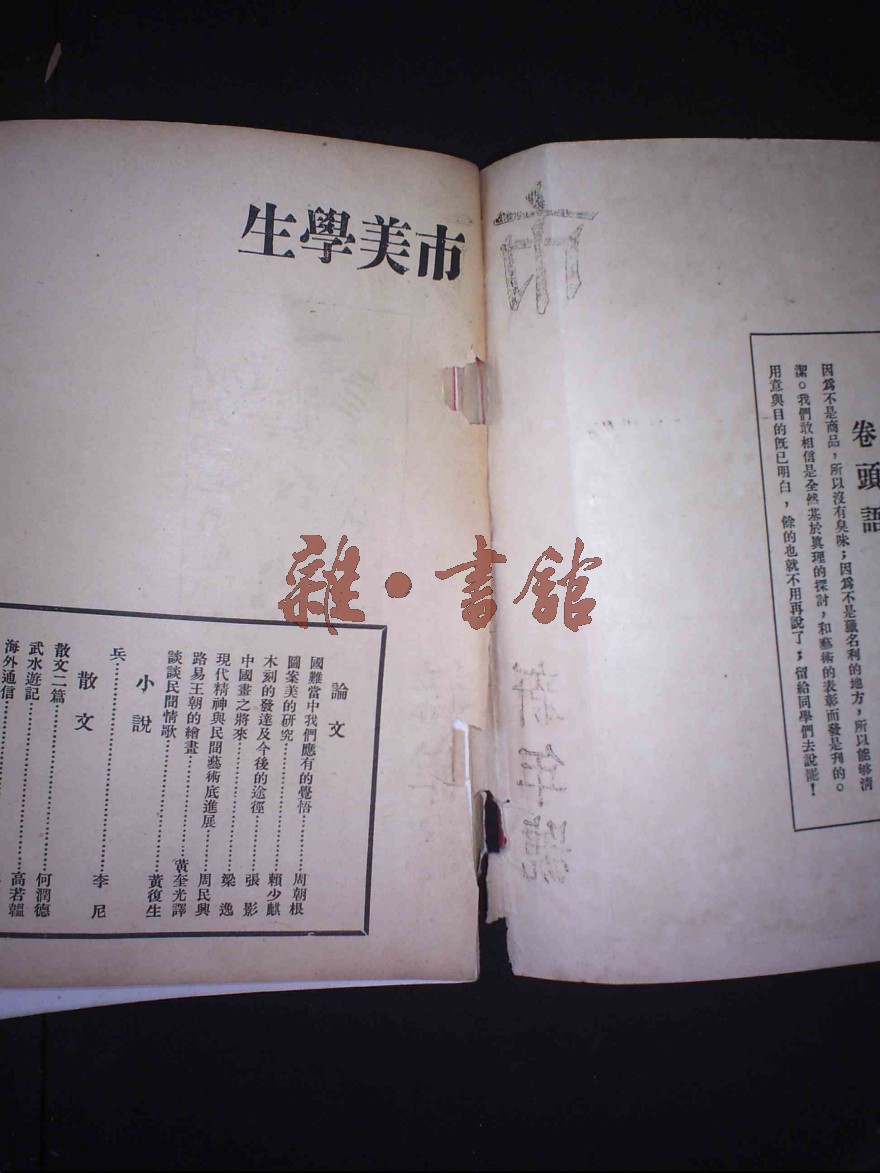 市美學生
市
新年號
卷頭語
因爲不是商品，所以沒有臭味；因爲不是獵名利的地方，所以能够清
潔。我們敢相信是全然基於眞理的探討，和藝術的表彰而發是刊的。
用意與目的旣已明白，餘的也就不用再說了；留給同學們去說罷！
論文
國難當中我們應有的覺悟……周朝根
圖案美的研究……賴少麒
木刻的發達及今後的途徑……張影
中國畫之將來……梁逸
現代精神與民間藝術底進展……周民興
路易王朝的繪畫……黃奎光譯
談談民間情歌……黃復生
小說
兵……李尼
散文
散文二篇……何潤德
武水遊記……高若韞
海外通信……
雜·書舘